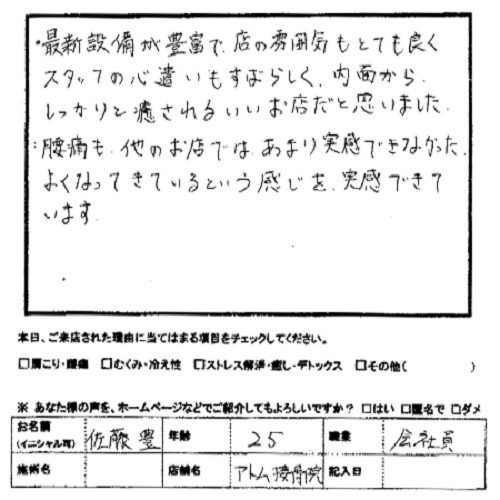 ・最新設備が豊富で、店の雰囲気もとても良く
スタッフの心遣いもすばらしく、内面から、
しっかりと癒されるいいお店だと思いました。
・腰痛も、他のお店では、あまり実感できなかった、
よくなってきているという感じを、実感できて
います。
本日、ご来店された理由に当てはまる項目をチェックしてください。
□肩こり・腰痛 □むくみ・冷え性 □ストレス解消・癒し・デトックス □その他( )
※ あなた様の声を、ホームページなどでご紹介してもよろしいですか? □はい □匿名で □ダメ
お名前(イニシャル可) 佐藤 豊 年齢 25 職業 会社員
施術名 店舗名 アトム接骨院 記入日